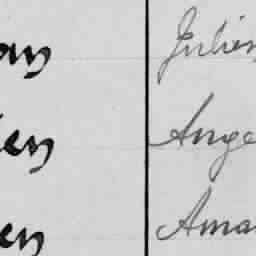 an Julien
en Ange
en Ama